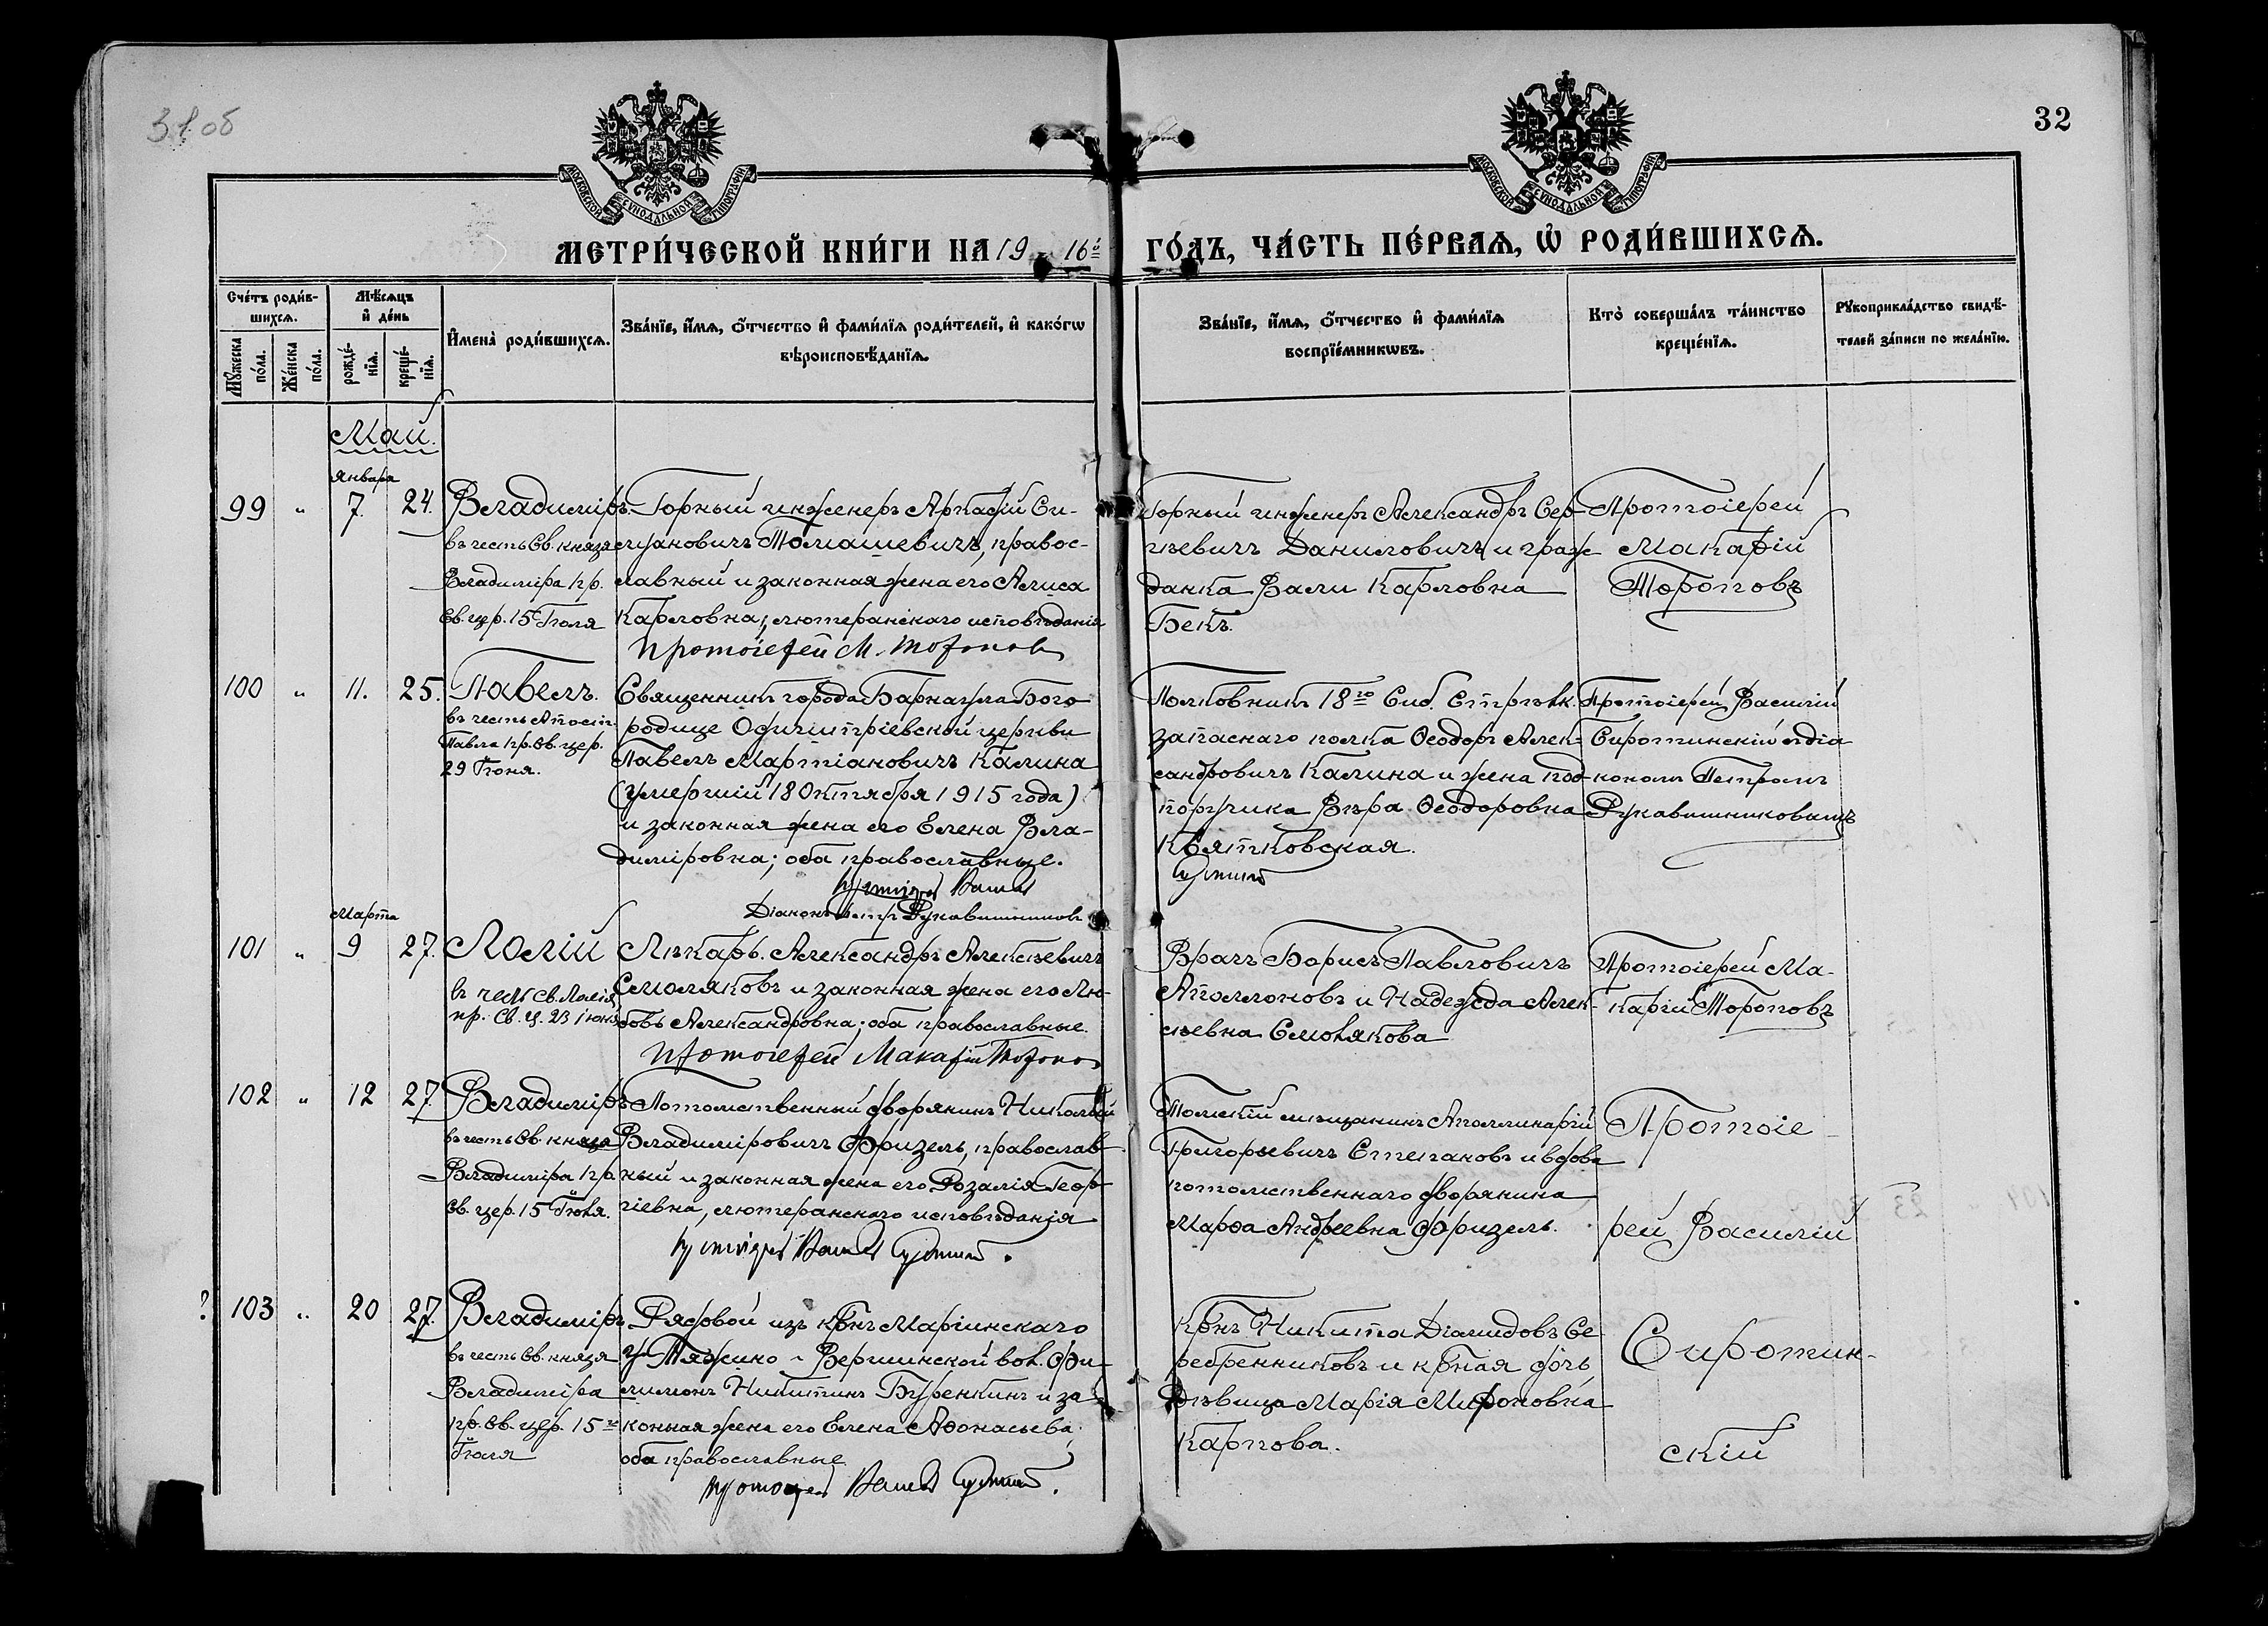 31об
32
МОСКОВСКОЙ СѴНОДАЛЬНОЙ ТИПОГРАФІИ
МОСКОВСКОЙ СѴНОДАЛЬНОЙ ТИПОГРАФІИ
МЕТРИ́ЧЕСКОЙ КНИ́ГИ НА 1916й ГО́ДЪ, ЧА́СТЬ ПЕ́РВАѦ, Ѡ҆ РОДИ́ВШИХСѦ.
Сче́тъ роди́в-
шихсѧ.
Мꙋ́жеска по́ла.
Же́нска по́ла.
Мѣ́сѧцъ
и҆ де́нь
рожде́-
нїѧ.
креще́-
нїѧ.
И҆мена̀ роди́вшихсѧ.
Зва́нїе, и҆́мѧ, ѻ҆́тчество и҆ фами́лїѧ роди́телей, и҆ како́гѡ
вѣроисповѣ́данїѧ.
Зва́нїе, и҆́мѧ, ѻ҆́тчество и҆ фами́лїѧ
воспрїе́мникѡвъ.
Кто̀ соверша́лъ та́инство
креще́нїѧ.
Рꙋкоприкла́дство свидѣ́-
телей за́писи по жела́нїю.
Май.
января
99 " 7. 24. Владиміръ.
въ честь Св. князя
Владиміра пр.
Св. цер. 15 Іюля
Горный инженеръ Аркадій Си-
луановичъ Томашевичъ, правос-
лавный и законная жена его Алиса
Карловна; лютеранскаго исповѣданія
Протоіерей М. Торопов
Горный инженеръ Александръ Сер-
гѣевичъ Даниловичъ и граж-
данка Вали Карловна
Бекъ.
Протоіерей
Макарій
Тороповъ
100 " 11. 25. Павелъ.
въ честь Апост.
Павла пр. Св. цер.
29 Іюня.
Священникъ города Барнаула Бого
родице Одигитріевской церкви
Павелъ Мартіановичъ Калина
(умершій 18 Октября 1915 года)
и законная жена его Елена Вла-
диміровна; оба православные.
Протоіерей Василій
Діаконъ Петръ Рукавишниковъ
Полковникъ 18го Сиб. Стрѣлк.
запаснаго полка Ѳеодоръ Алек-
сандровичъ Калина и жена под-
поручика Вѣра Ѳеодоровна
Квятковская.
Протоіерей Василій
Сиротинскій съ діа
кономъ Петромъ
Рукавишниковымъ
Марта
101 " 9 27. Лолій
въ честь Св. Лолія
пр. Св. Ц. 23 іюня
Лѣкарь Александръ Алексѣевичъ
Смоляковъ и законная жена его Лю-
бовь Александровна; оба православные.
Протоіерей Макарій Торопов
Врачъ Борисъ Павловичъ
Аполлоновъ и Надежда Алек-
сѣевна Смолякова
Протоіерей Ма-
карій Тороповъ
102 " 12 27. Владиміръ
въ честь Св. князя
Владиміра пр.
Св. цер. 15 Іюля.
Потомственный дворянинъ Николай
Владиміровичъ Фризель, православ
ный и законная жена его Розалія Геор
гіевна, лютеранскаго исповѣданія
Протоіерей Василій Сиротинск.
Томскій мѣщанинъ Аполлинарій
Григорьевичъ Степановъ и вдова
потомственнаго дворянина
Марѳа Андреевна Фризель.
Протоіе-
рей Василій
? 103 " 20 27. Владиміръ
въ честь Св. князя
Владиміра
пр. Св. цер. 15го
Іюля
Рядовой изъ крнъ Маріинскаго
у. Тяжино-Вершинской вол. Фи-
лимонъ Никитинъ Буренкинъ и за-
конная жена его Елена Аѳонасьева;
оба православные
Протоіерей Василій Сиротинск.
Крнъ Никита Діамидовъ Се-
ребренниковъ и крная дочь
дѣвица Марія Мироновна
Карпова.
Сиротин-
скій